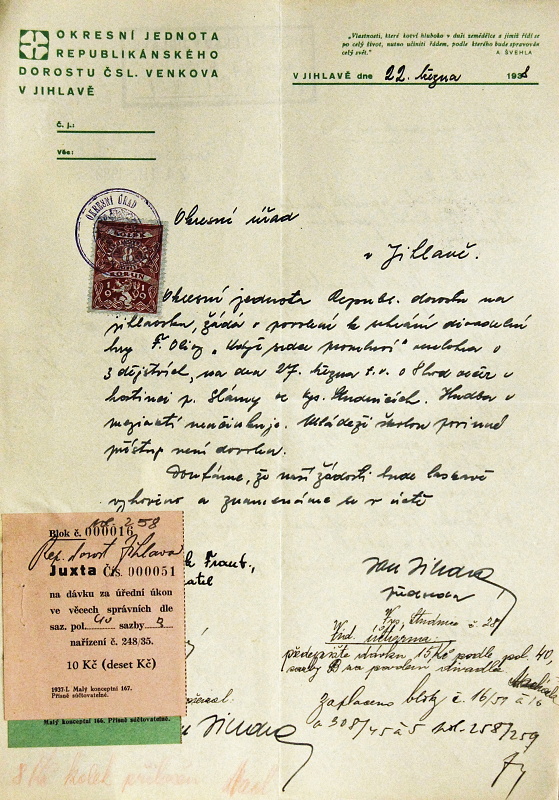 OKRESNÍ JEDNOTA
REPUBLIKÁNSKÉHO
DOROSTU ČSL. VENKOVA
V JIHLAVĚ
„Vlastnosti, které kotví hluboko v duši zemědělce a jimiž řídí se
po celý život, nutno učiniti řádem, podle kterého bude spravován
celý svět."
A. ŠVEHLA
V JIHLAVĚ dne 22. března 1938
Č. j.:
Věc:
OKRESNÍ ÚŘAD
KOLEK
8
KORUN
1919
Okresní úřad
v Jihlavě.
Okresní jednota Republ. dorostu na
jihlavsku, žádá o povolení k sehrání divadelní
hry F. Olivy „Když srdce promluví" veselohra o
3 dějstvích, na den 27. března t.r. o 8 hod večer v
hostinci p. Slámy ve Vys. Studnicích. Hudba v
meziaktí neúčinkuje. Mládeži školou povinné
přístup není dovolen.
Doufáme, že naší žádosti bude laskavě
vyhověno a znamenáme se v úctě
pol. 258
Blok č. 000016
Rep. dorost Jihlava
Juxta Čís. 000051
na dávku za úřední úkon
ve věcech správních dle
saz. pol. 40 sazby B
nařízení č. 248/35.
10 Kč (deset Kč)
1937-I. Malý konceptní 167.
Přísně súčtovatelné.
Malý konceptní 166. Přísně súčtovatelné.
k Frant.,
předseda
Vys. Studnice č. 28
Vid. účtárna.
předepište dávku 15 Kč podle pol. 40,
sazby B za povolení divadla
Zaplaceno bloky č. 16/51 à 10
a 308/45 à 5 pol. 258/259
8 Kč kolek přilepen